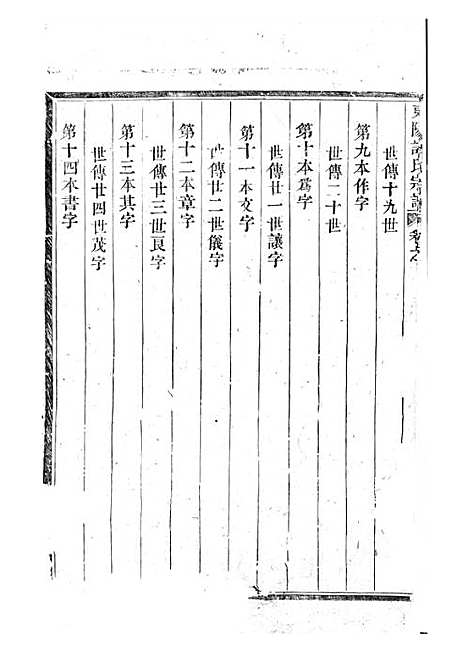 世傳十九世
第九本作字
世傳二十世
第十本為字
世傳廿一世讓字
第十一本文字
世傳廿二世儀字
第十二本章字
世傳廿三世良字
第十三本其字
世傳廿四世茂字
第十四本書字